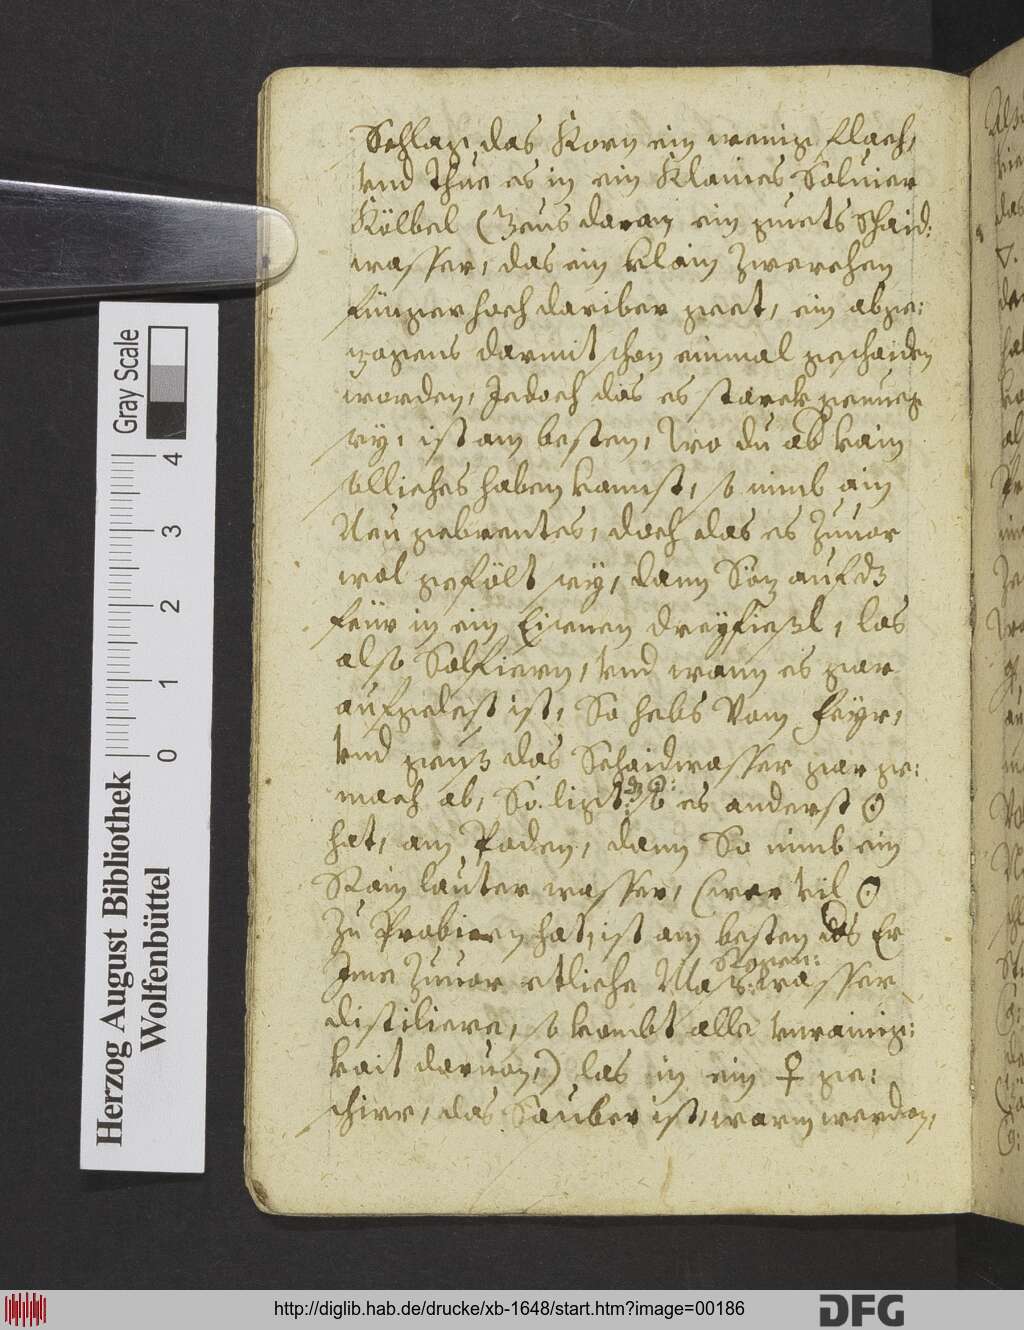 Schlag das Korn ein wenig flach,
vnd thue es in ein Klaines Soluier
Kölbel (Geus daran ein guets Schaid:
wasser, das ein klain Zwerchen
finger hoch dariber geet, ein abge:
zogens darmit schon einmal geschaiden
worden, Jedoch das es starck genueg
sey, ist am besten, Wo du ab kain
solliches haben kannst, so nimb ain
Neu gebrentes, doch das es Zuuor
wol gefölt sey, dann Söz auf dz
feür in ein Eisenen dreyfießl, las
also Solfiern, vnd wann es gar
aufgelest ist, So hebs vom feyr,
vnd geuß das Schaidwasser gar ge:
mach ab, So ligt dz ☉: so es anderst ☉
hat, am Poden, dann So nimb ein
Rain lauter wasser, (wer vil ☉
Zu Probieren hat, ist am besten das Er
Ime Zuuor etliche Mas Regen: wasser
distiliere, so kombt alle vnrainig:
kait daruon,) las in ein ♀ ge:
schirr, das Sauber ist, warm werden,
Gray Scale
0 1 2 3 4
Herzog August Bibliothek
Wolfenbüttel
http://diglib.hab.de/drucke/xb-1648/start.htm?image=00186
DFG